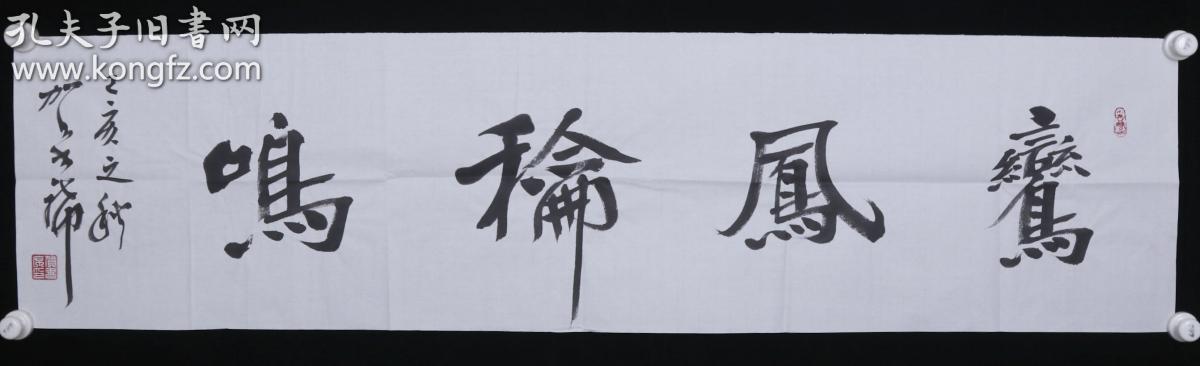 孔夫子旧书网
www.kongfz.com
鸞鳳稐鳴
亥之秋